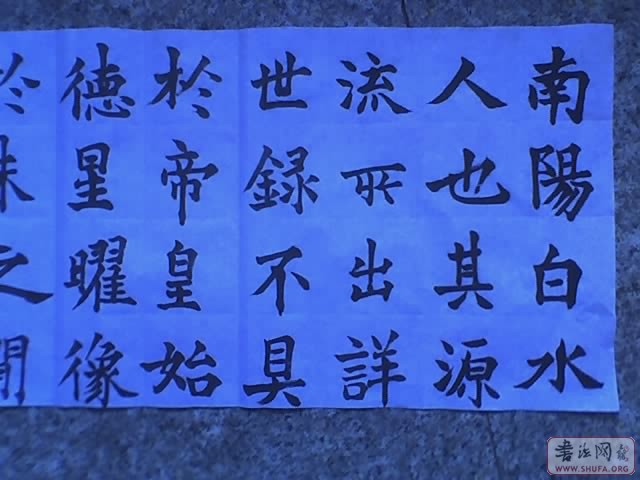 南陽白水
人也其源
流所出詳
世録不具
於帝皇始
德星曜像
於朱之間
書法网
WWW.SHUFA.ORG